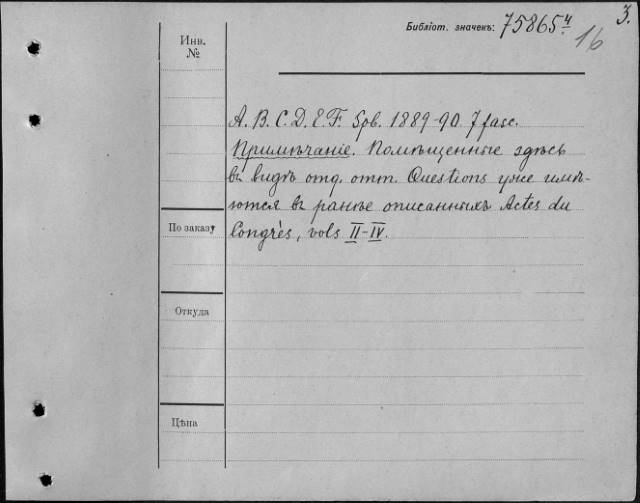 3.
Библіот. значекъ: 75865 4
16
Инв.
№
A. B. C. D. E. F. Spb. 1889-90. 7 fasc.
Примѣчаніе. Помѣщенные здѣсь
въ видѣ отд. отт. Questions уже имѣ-
ются въ ранѣе описанныхъ Actes du
Congrès, vols II-IV.
По заказу
Откуда
Цѣна